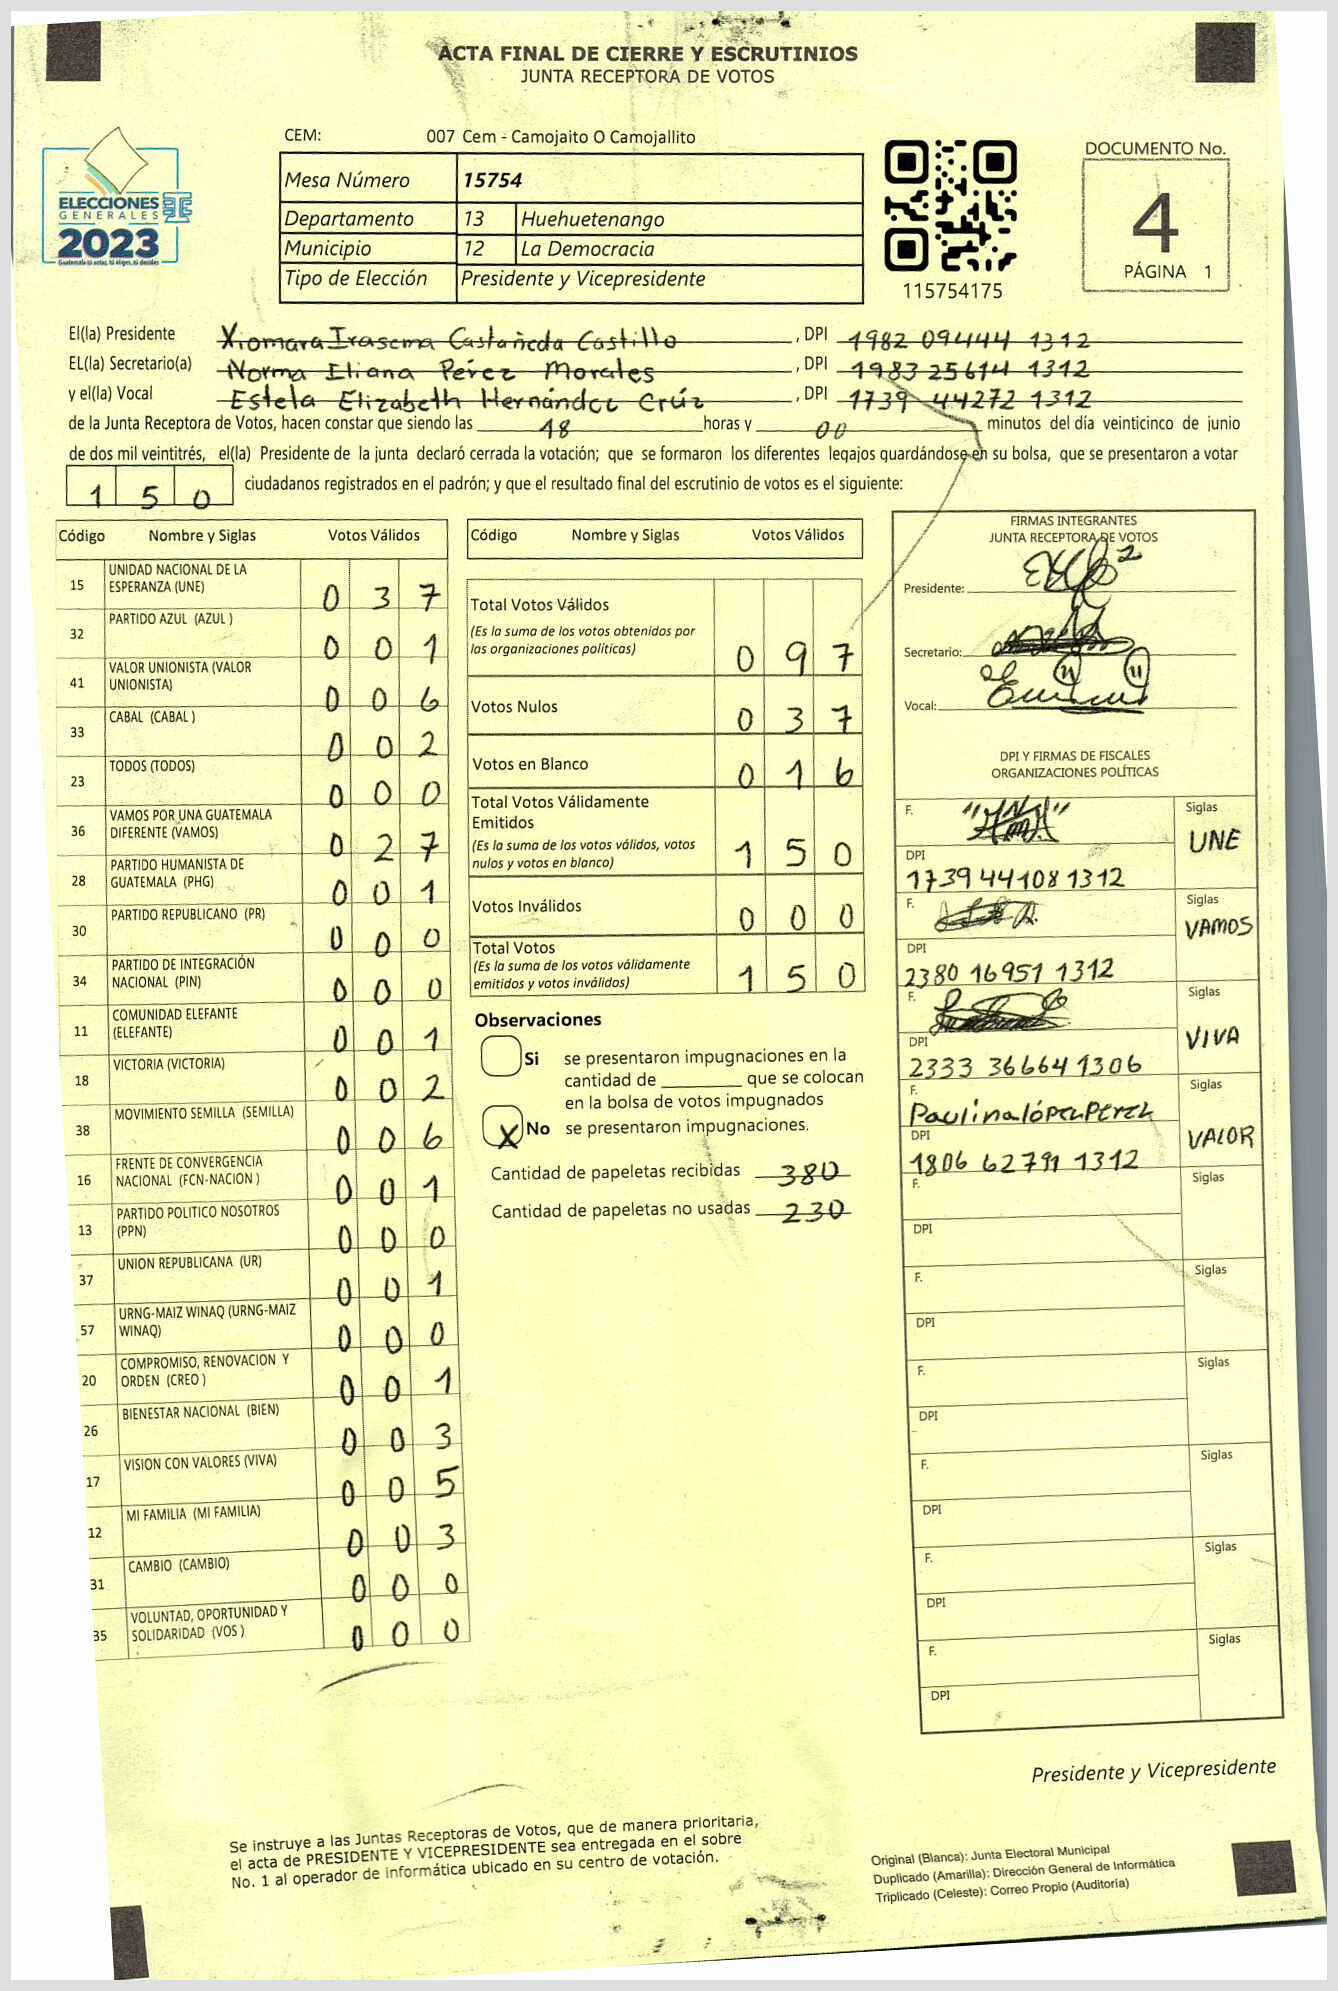 ACTA FINAL DE CIERRE Y ESCRUTINIOS
JUNTA RECEPTORA DE VOTOS
CEM: 007 Cem - Camojaito O Camojallito
Mesa Número 15754
Departamento 13 Huehuetenango
Municipio 12 La Democracia
Tipo de Elección Presidente y Vicepresidente
ELECCIONES
GENERALES
2023
Guatemala tú votas, tú eliges, tú decides
115754175
DOCUMENTO No.
4
PÁGINA 1
El(la) Presidente Xiomara Irasema Castañeda Castillo, DPI 1982 09444 1312
EL(la) Secretario(a) Norma Eliana Pérez Morales, DPI 1983 25614 1312
y el(la) Vocal Estela Elizabeth Hernández Crúz, DPI 1739 44272 1312
de la Junta Receptora de Votos, hacen constar que siendo las 18 horas y 00 minutos del día veinticinco de junio
de dos mil veintitrés, el(la) Presidente de la junta declaró cerrada la votación; que se formaron los diferentes legajos guardándose en su bolsa, que se presentaron a votar
150 ciudadanos registrados en el padrón; y que el resultado final del escrutinio de votos es el siguiente:
Código Nombre y Siglas Votos Válidos
15 UNIDAD NACIONAL DE LA ESPERANZA (UNE) 037
32 PARTIDO AZUL (AZUL ) 001
41 VALOR UNIONISTA (VALOR UNIONISTA) 006
33 CABAL (CABAL ) 002
23 TODOS (TODOS) 000
36 VAMOS POR UNA GUATEMALA DIFERENTE (VAMOS) 027
28 PARTIDO HUMANISTA DE GUATEMALA (PHG) 001
30 PARTIDO REPUBLICANO (PR) 000
34 PARTIDO DE INTEGRACIÓN NACIONAL (PIN) 000
11 COMUNIDAD ELEFANTE (ELEFANTE) 001
18 VICTORIA (VICTORIA) 002
38 MOVIMIENTO SEMILLA (SEMILLA) 006
16 FRENTE DE CONVERGENCIA NACIONAL (FCN-NACION ) 001
13 PARTIDO POLITICO NOSOTROS (PPN) 000
37 UNION REPUBLICANA (UR) 001
57 URNG-MAIZ WINAQ (URNG-MAIZ WINAQ) 000
20 COMPROMISO, RENOVACION Y ORDEN (CREO ) 001
26 BIENESTAR NACIONAL (BIEN) 003
17 VISION CON VALORES (VIVA) 005
12 MI FAMILIA (MI FAMILIA) 003
31 CAMBIO (CAMBIO) 000
35 VOLUNTAD, OPORTUNIDAD Y SOLIDARIDAD (VOS ) 000
Código Nombre y Siglas Votos Válidos
Total Votos Válidos 097
(Es la suma de los votos obtenidos por
las organizaciones políticas)
Votos Nulos 037
Votos en Blanco 016
Total Votos Válidamente
Emitidos 150
(Es la suma de los votos válidos, votos
nulos y votos en blanco)
Votos Inválidos 000
Total Votos 150
(Es la suma de los votos válidamente
emitidos y votos inválidos)
Observaciones
Si se presentaron impugnaciones en la
cantidad de ________ que se colocan
en la bolsa de votos impugnados
X No se presentaron impugnaciones.
Cantidad de papeletas recibidas 380
Cantidad de papeletas no usadas 230
FIRMAS INTEGRANTES
JUNTA RECEPTORA DE VOTOS
Presidente:
Secretario:
Vocal:
DPI Y FIRMAS DE FISCALES
ORGANIZACIONES POLÍTICAS
F. Siglas UNE
DPI
1739 44108 1312
F. Siglas VAMOS
DPI
2380 16951 1312
F. Siglas VIVA
DPI
2333 36664 1306
F. Siglas VALOR
Paulina López Pérez
DPI
1806 62791 1312
F. Siglas
DPI
F. Siglas
DPI
F. Siglas
DPI
F. Siglas
DPI
F. Siglas
DPI
F. Siglas
DPI
Presidente y Vicepresidente
Se instruye a las Juntas Receptoras de Votos, que de manera prioritaria,
el acta de PRESIDENTE Y VICEPRESIDENTE sea entregada en el sobre
No. 1 al operador de informática ubicado en su centro de votación.
Original (Blanca): Junta Electoral Municipal
Duplicado (Amarilla): Dirección General de Informática
Triplicado (Celeste): Correo Propio (Auditoría)